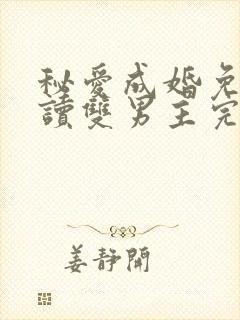 秘愛成婚免
讀雙男主完
姜靜開